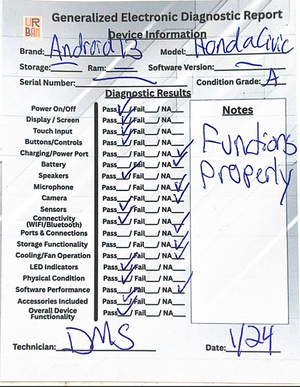 UR
BAN
Generalized Electronic Diagnostic Report
Device Information
Brand: Android 13 Model: HondaCivic
Storage: Ram: Software Version:
Serial Number: Condition Grade: A
Diagnostic Results
Power On/Off Pass ✓/Fail /NA
Display / Screen Pass ✓/Fail /NA
Touch Input Pass ✓/Fail /NA
Buttons/Controls Pass ✓/Fail /NA
Charging/Power Port Pass /Fail /NA ✓
Battery Pass /Fail /NA ✓
Speakers Pass ✓/Fail /NA
Microphone Pass /Fail /NA ✓
Camera Pass /Fail /NA ✓
Sensors Pass ✓/Fail /NA
Connectivity (WIFI/Bluetooth) Pass ✓/Fail /NA
Ports & Connections Pass ✓/Fail /NA
Storage Functionality Pass /Fail /NA ✓
Cooling/Fan Operation Pass /Fail /NA ✓
LED Indicators Pass ✓/Fail /NA
Physical Condition Pass ✓/Fail /NA
Software Performance Pass /Fail /NA ✓
Accessories Included Pass ✓/Fail /NA
Overall Device Functionality Pass ✓/Fail /NA
Notes
Functions
Properly
Technician: DMS Date: 1/24